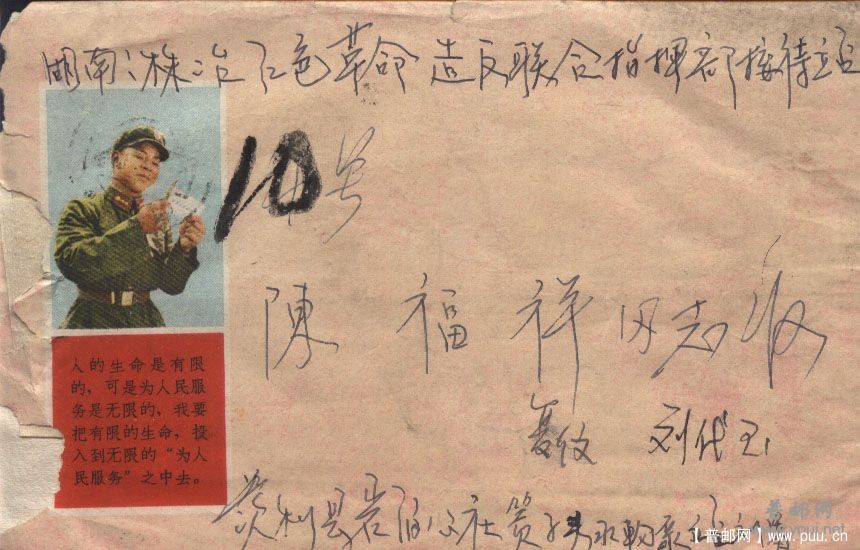 湖南株冶红色革命造反联合指挥部接待站
10号
陳福祥同志收
人的生命是有限
的，可是为人民服
务是无限的，我要
把有限的生命，投
入到无限的“为人
民服务”之中去。
刘代玉
慈利县 公社
普邮网
【普邮网】www.puu.cn